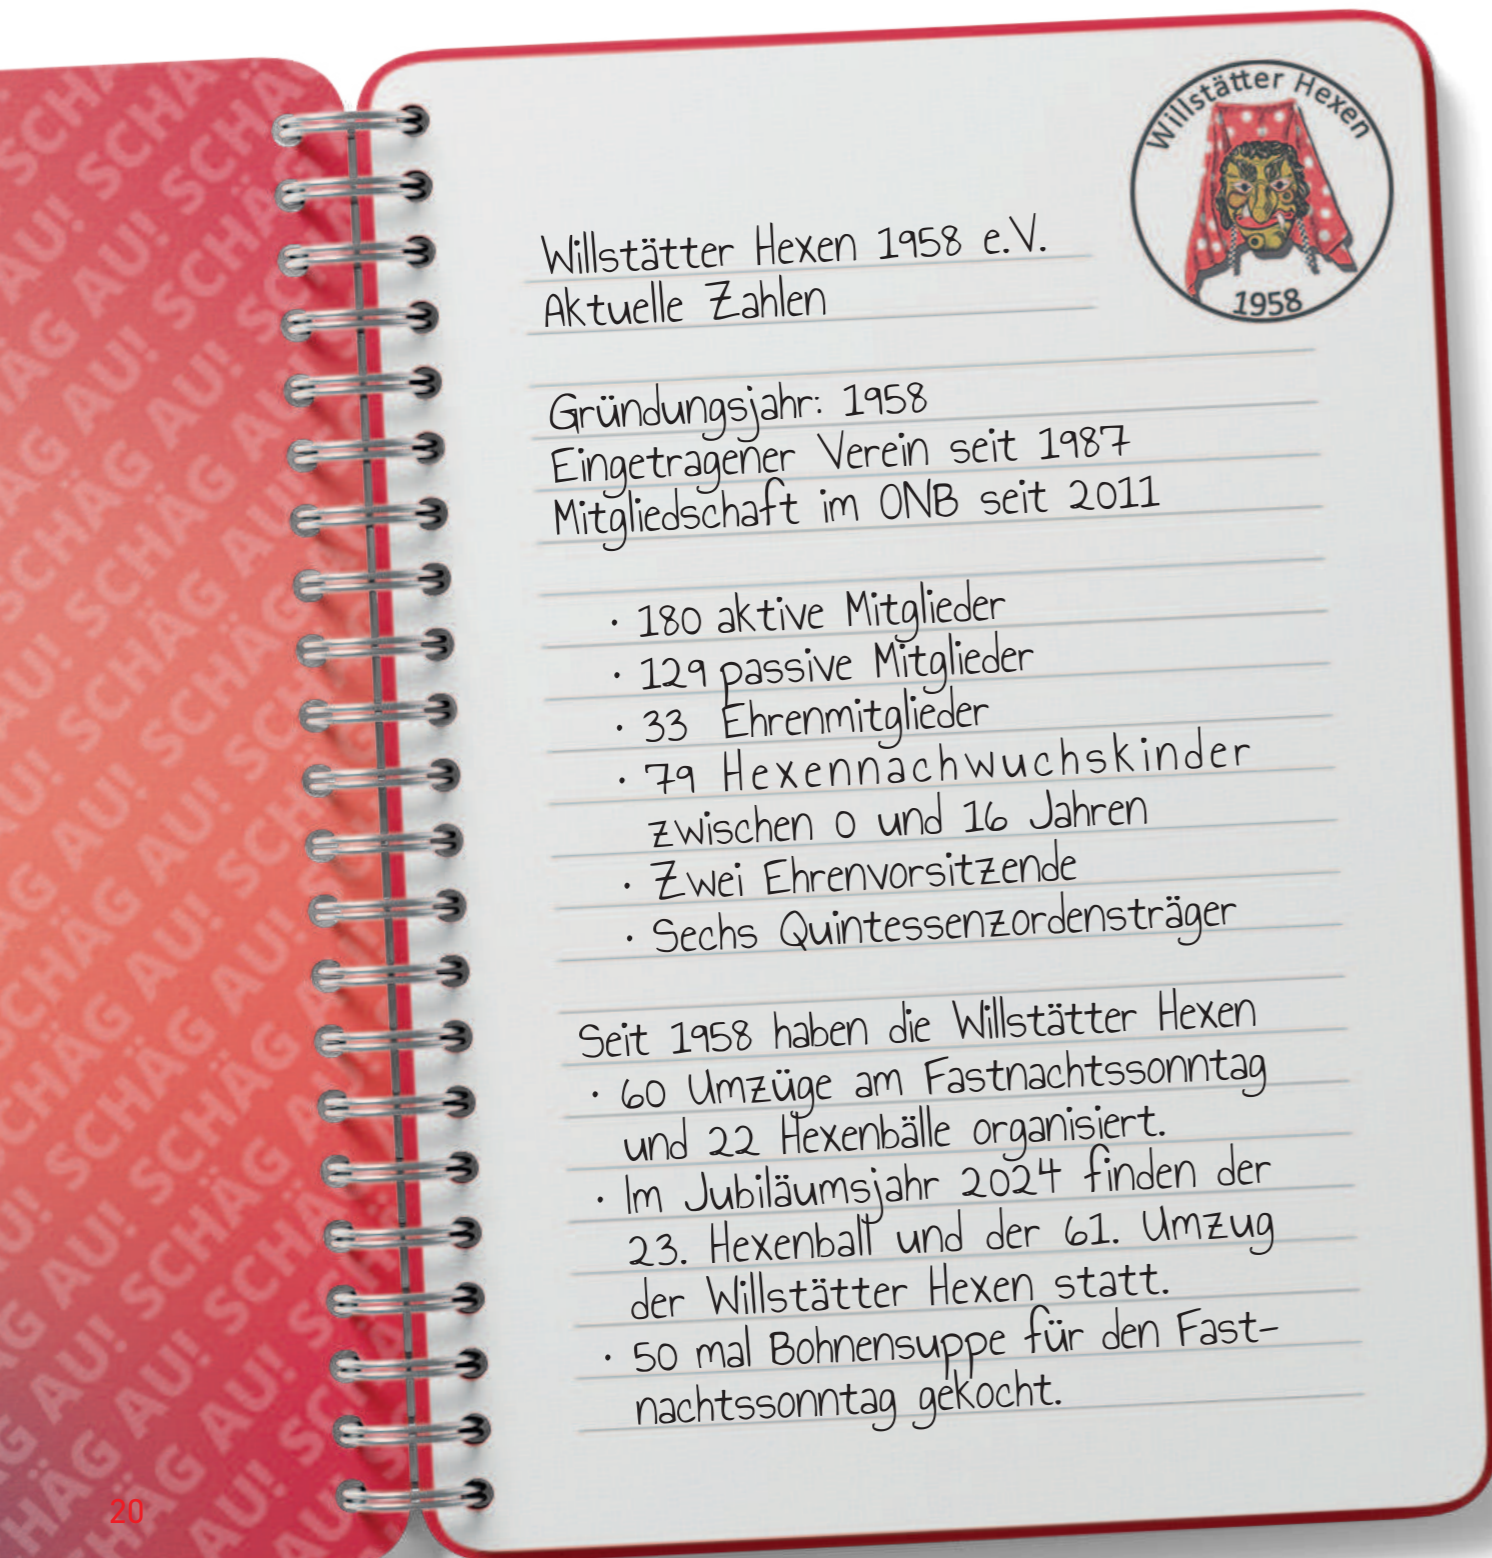 Willstätter Hexen
1958
Willstätter Hexen 1958 e.V.
Aktuelle Zahlen
Gründungsjahr: 1958
Eingetragener Verein seit 1987
Mitgliedschaft im ONB seit 2011
· 180 aktive Mitglieder
· 129 passive Mitglieder
· 33 Ehrenmitglieder
· 79 Hexennachwuchskinder
zwischen 0 und 16 Jahren
· Zwei Ehrenvorsitzende
· Sechs Quintessenzordensträger
Seit 1958 haben die Willstätter Hexen
· 60 Umzüge am Fastnachtssonntag
und 22 Hexenbälle organisiert.
· Im Jubiläumsjahr 2024 finden der
23. Hexenball und der 61. Umzug
der Willstätter Hexen statt.
· 50 mal Bohnensuppe für den Fast-
nachtssonntag gekocht.
20